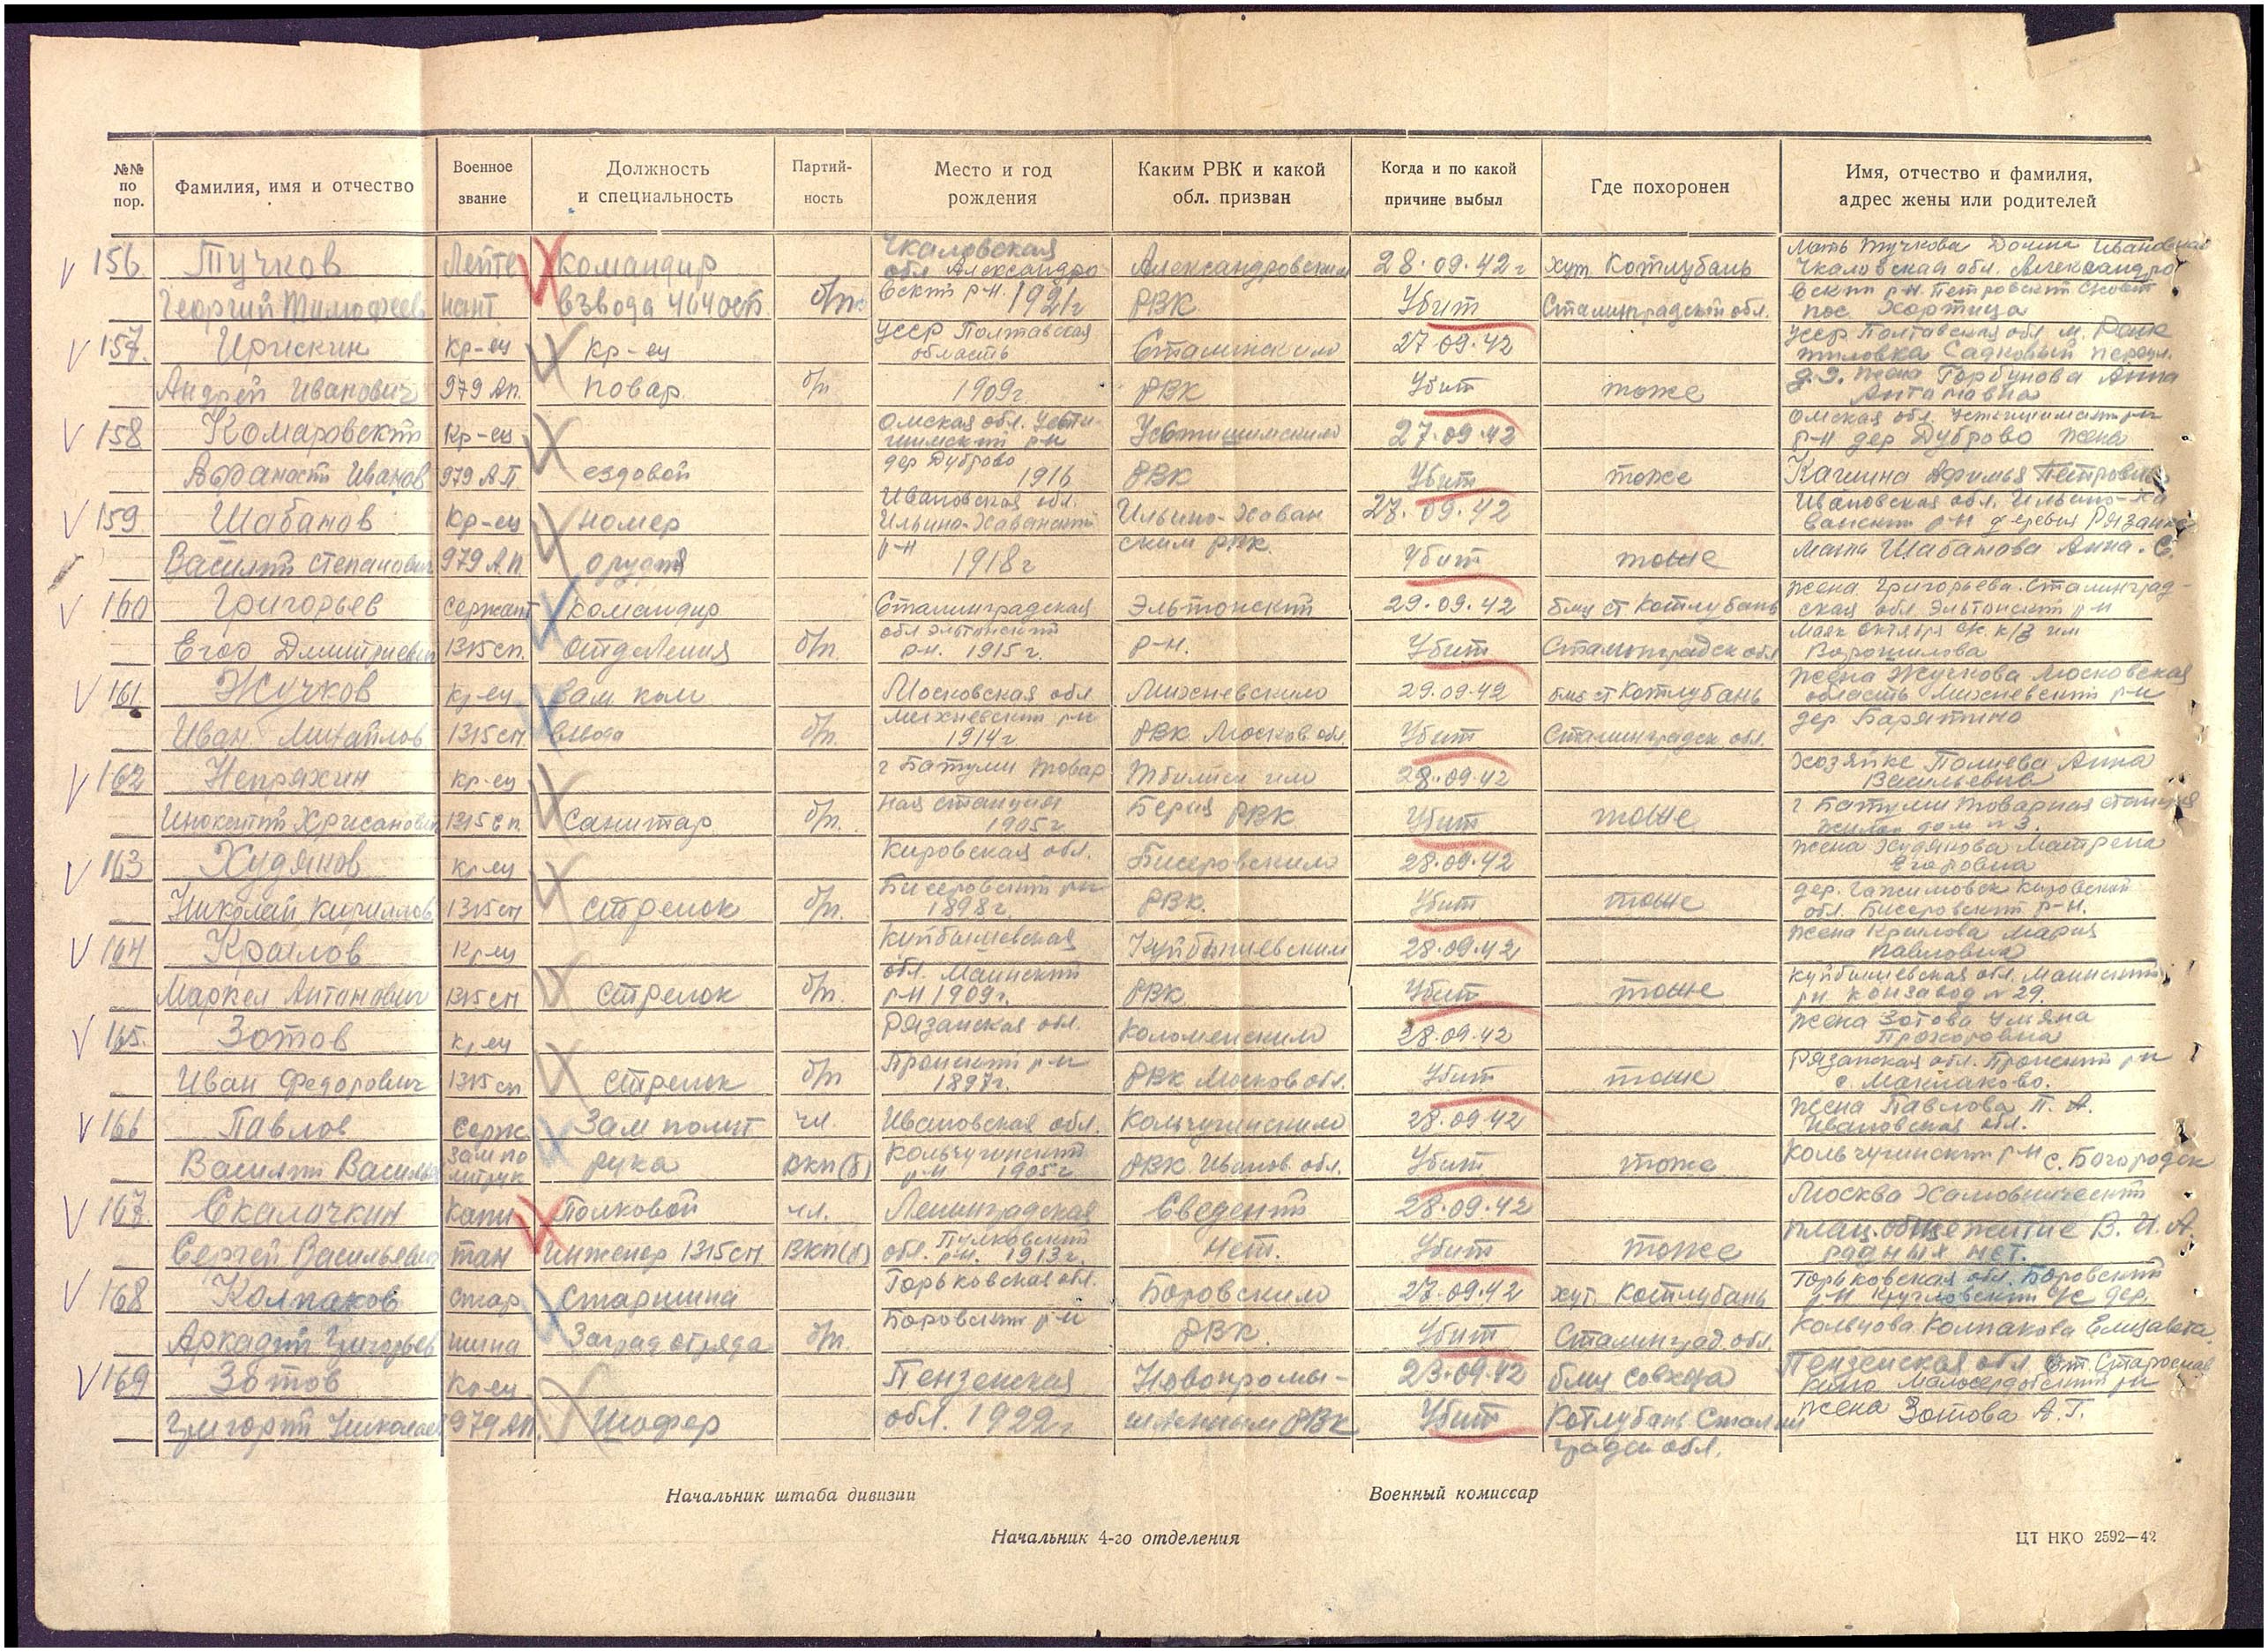 №№ по пор.
Фамилия, имя и отчество
Военное звание
Должность и специальность
Партий- ность
Место и год рождения
Каким РВК и какой обл. призван
Когда и по какой причине выбыл
Где похоронен
Имя, отчество и фамилия, адрес жены или родителей
156. Тучков Лейте Командир Чкаловская обл. Александро Александровским 28.09.42г хут. Котлубань Мать Тучкова Домна Ивановна Чкаловская обл. Александро
Георгий Тимофеев нант взвода 464 осб. б/п. вский р-н. 1921г РВК Убит Сталинградской обл. вский р-н. Петровский с/совет пос. Хортица
157. Ирискин Кр-ец Кр-ец УССР Полтавская область Сталинским 27.09.42 УССР Полтавская обл. м.
Андрей Иванович 979 Ап. повар б/п. 1909г. РВК Убит тоже д.9. жена Горбунова Анна Антоновна
158 Комаровский Кр-ец Омская обл. Усть-ишимский р-н Устишимским 27.09.42 Омская обл. р-н дер Дуброво жена
Иванов 979 А.П. ездовой дер Дуброво 1916 РВК Убит тоже Петровна
159 Шабанов Кр-ец номер Ивановская обл. Ильино-Хованский Ильино-Хован 27.09.42 Ивановская обл. Ильино-Хо ванский р-н деревня
Василий Степанович 979 А.П орудия р-н 1918г ским РВК. Убит тоже Мать Шабанова Анна.С.
160 Григорьев Сержант Командир Сталинградская Эльтонский 29.09.42 близ ст Котлубань Жена Григорьева. Сталинград- ская обл. Эльтонский р-н
Егор Дмитриевич 1315сп. отделения б/п. обл Эльтонский р-н. 1915г. р-н. Убит Сталинградск обл Маяк Октября с/с. к/з им Ворошилова
161. Жучков Кр-ец Зам ком Московская обл Михневским 29.09.42 близ ст Котлубань Жена Жучкова Московская область Михневский р-н
Иван Михайлов 1315сп взвода б/п. Михневский р-н 1914г. РВК Москов обл. Убит Сталинградск обл. дер Барятино
162 Непряхин Кр-ец г Батуми товар Тбилиси им 28.09.42 Хозяйке Анна Васильевна
Инокентий Хрисанович 1315сп. Санитар б/п. ная станция 1905г. Берия РВК Убит тоже г Батуми товарная станция жилой дом №3.
163 Худяков Кр-ец Кировская обл. Бисеровским 28.09.42 Жена Худякова Матрена Егоровна
Николай Кириллов 1315сп стрелок б/п. Бисеровский р-н 1898г. РВК. Убит тоже дер. Кировской обл. Бисеровский р-н.
164 Крылов Кр-ец Куйбышевская Куйбышевским 28.09.42 Жена Крылова Мария Павловна
Маркел Антонович 1315сп стрелок б/п. обл. Маинский р-н 1909г. РВК Убит тоже Куйбышевская обл. Маинский р-н конзавод №29.
165. Зотов Кр-ец Рязанская обл. Коломенским 28.09.42 Жена Зотова Ульяна Прохоровна
Иван Федорович 1315сп. стрелок б/п Пронский р-н 1897г. РВК Москов обл. Убит тоже Рязанская обл. Пронский р-н с. Маклаково.
166 Павлов Серж. Зам полит чл. Ивановская обл. Кольчугинским 28.09.42 Жена Павлова П. А. Ивановская обл.
Василий Василье зам по литрук рука ВКП(б) Кольчугинский р-н 1905г РВК Иванов. обл. Убит тоже Кольчугинский р-н с. Богородск
167. Скалочкин Капи Полковой чл. Ленинградская Сведений 28.09.42 Москва Хамовнический
Сергей Васильевич тан инженер 1315сп. ВКП(б) обл. Пулковский р-н. 1913г. нет. Убит тоже плац. общежитие В.И.А. родных нет.
168 Колпаков стар Старшина Горьковская обл. Боровским 27.09.42 хут. Котлубань Горьковская обл. Боровский р-н Кругловский с/с дер.
Аркадий Григорьев шина Заград отряда б/п. Боровский р-н РВК. Убит Сталинград. обл. Кольцова Колпакова Елизавета
169 Зотов Кр-ец Пензенская Новопромы- 23.09.42 близ совхоза Пензенская обл.
Григорий Николаев 979 АП. Шофер обл. 1922г шленным РВК Убит Котлубань Сталин градск обл. жена Зотова А.Г.
Начальник штаба дивизии
Военный комиссар
Начальник 4-го отделения
ЦТ НКО 2592—42